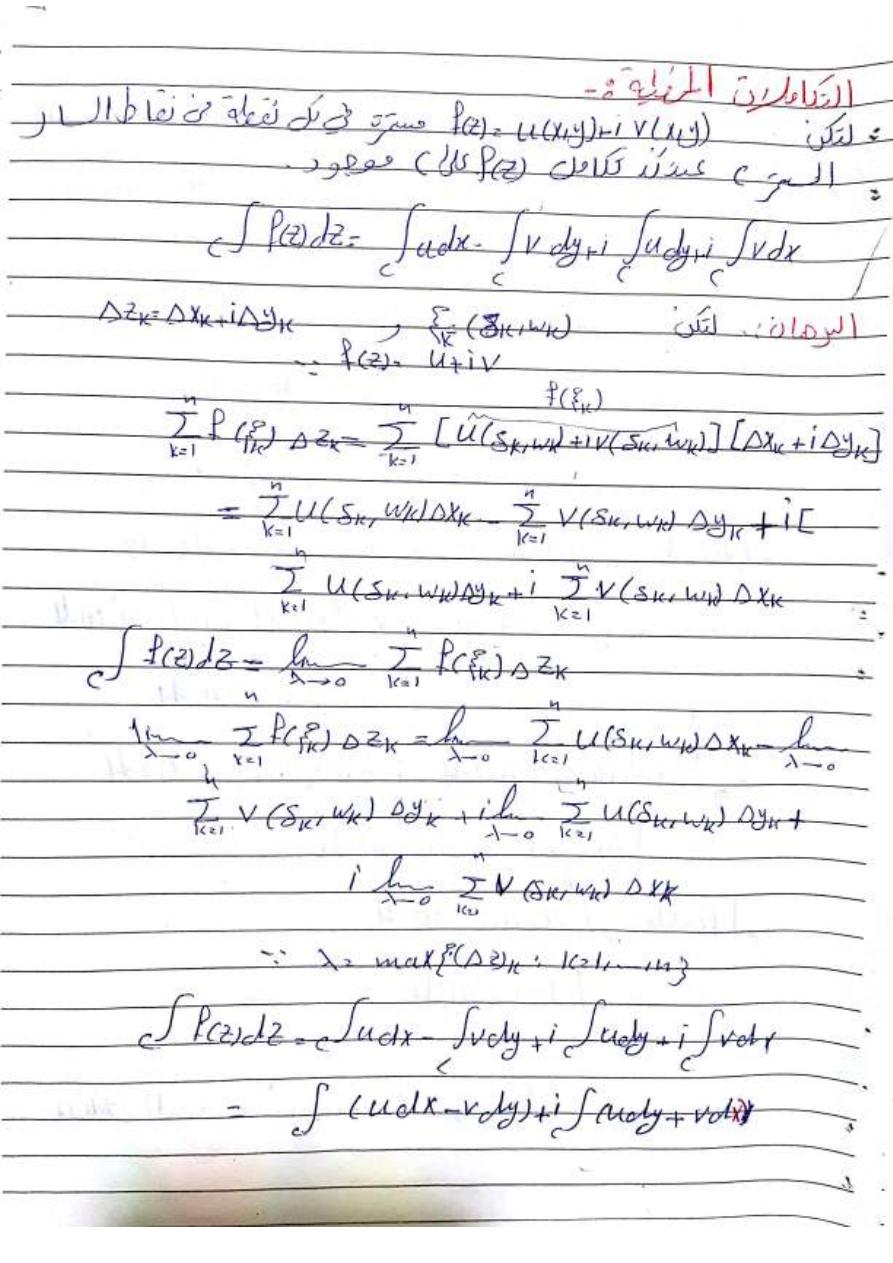 التكاملات الخطية :-
لتكن f(z) = u(x,y)+i v(x,y) مستمرة في كل نقطة من نقاط المسار
C عندئذ تكامل f(z) على C موجود.
∫_C f(z)dz = ∫_C udx - ∫_C v dy + i ∫_C udy + i ∫_C v dx
البرهان:. لتكن ξ_k = (δ_k, w_k) و Δz_k = Δx_k + iΔy_k
∵ f(z) = u+iv
f(ξ_k)
∑_{k=1}^{n} f(ξ_k) Δz_k = ∑_{k=1}^{n} [u(δ_k,w_k)+iv(δ_k,w_k)] [Δx_k + iΔy_k]
= ∑_{k=1}^{n} u(δ_k, w_k) Δx_k - ∑_{k=1}^{n} v(δ_k, w_k) Δy_k + i[
∑_{k=1}^{n} u(δ_k, w_k) Δy_k + i ∑_{k=1}^{n} v(δ_k, w_k) Δx_k
∫_C f(z)dz = lim_{λ→0} ∑_{k=1}^{n} f(ξ_k) Δz_k
lim_{λ→0} ∑_{k=1}^{n} f(ξ_k) Δz_k = lim_{λ→0} ∑_{k=1}^{n} u(δ_k, w_k) Δx_k - lim_{λ→0}
∑_{k=1}^{n} v(δ_k, w_k) Δy_k + i lim_{λ→0} ∑_{k=1}^{n} u(δ_k, w_k) Δy_k +
i lim_{λ→0} ∑_{k=0}^{n} v(δ_k, w_k) Δx_k
∵ λ = max{(Δz)_k : k=1,...,n}
∫_C f(z)dz = ∫_C udx - ∫_C vdy + i ∫_C udy + i ∫_C vdx
= ∫_C (udx - vdy) + i ∫_C (udy + vdx)